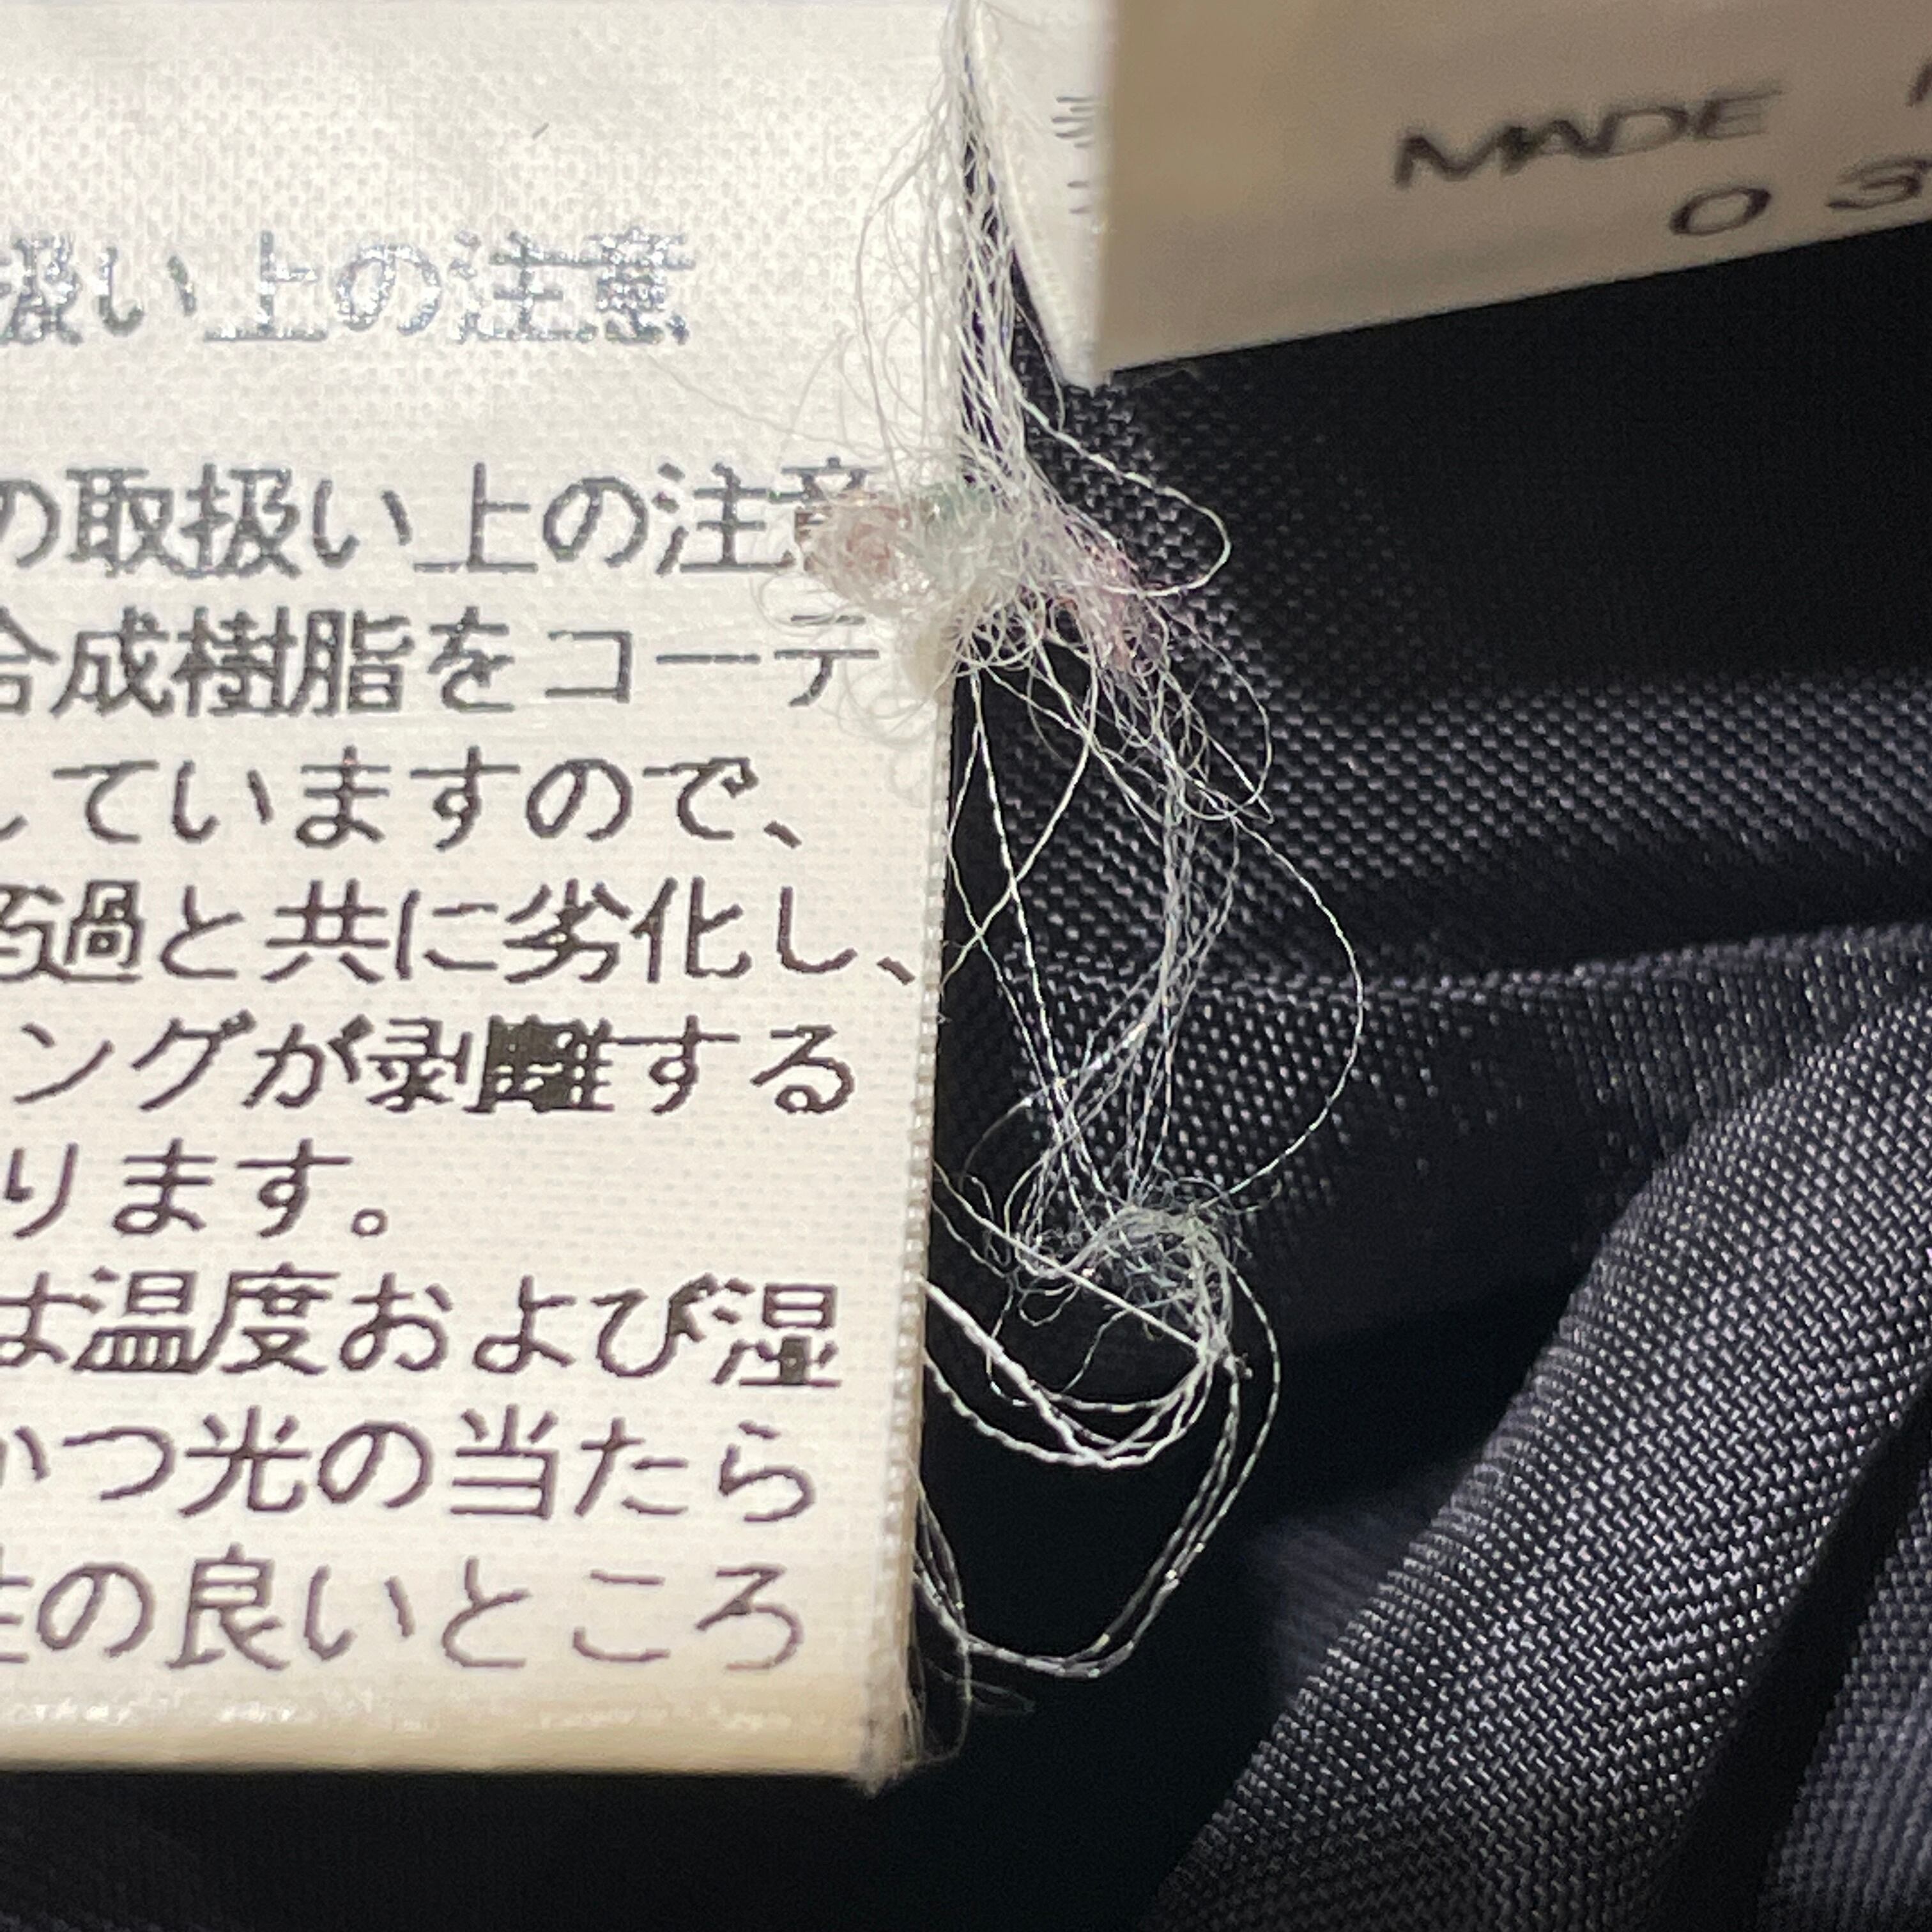 扱い上の注意
の取扱い上の注意
合成樹脂をコーテ
していますので、
過と共に劣化し、
ングが剥離する
ります。
は温度および湿
かつ光の当たら
の良いところ
MADE
03